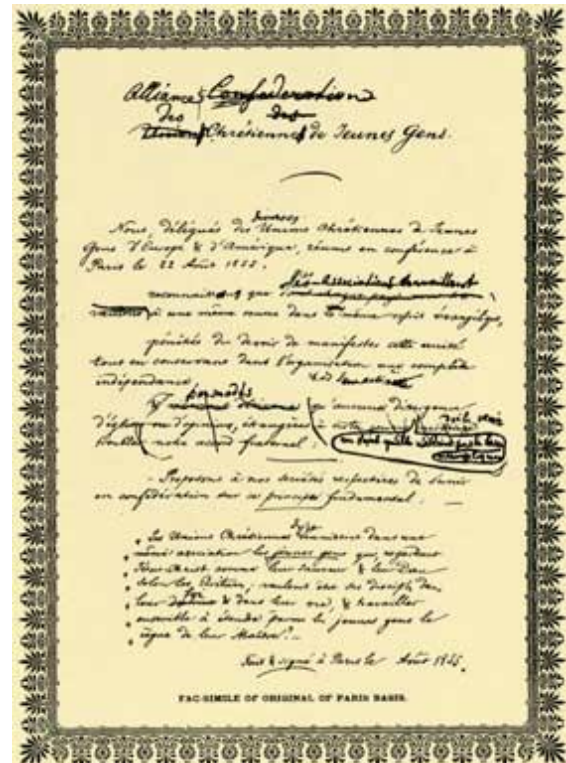 Alliance Confédération
des des
Unions Chrétiennes de Jeunes Gens.
diverses
Nous, délégués des Unions Chrétiennes de Jeunes
Gens d'Europe & d'Amérique, réunis en conférence à
Paris le 22 Août 1855,
les associations travaillent
reconnaissant que
à une même œuvre dans le même esprit évangélique,
pénétrés du devoir de manifester cette unité
tout en conservant dans l'organisation une complète
indépendance
qu'aucune divergence
d'église ou d'opinion, étrangères à
troubler notre accord fraternel.
- Proposons à nos sociétés respectives de s'unir
en confédération sur ce principe fondamental. -
" Les Unions Chrétiennes réunissent dans une
" même association les jeunes gens qui, regardant
" Jésus Christ comme leur Sauveur & leur Dieu
" selon les Écritures, veulent être ses disciples dans
" leur foi & dans leur vie, & travailler
" ensemble à étendre parmi les jeunes gens le
" règne de leur Maître." -
Fait & signé à Paris le Août 1855.
FAC-SIMILE OF ORIGINAL OF PARIS BASIS.